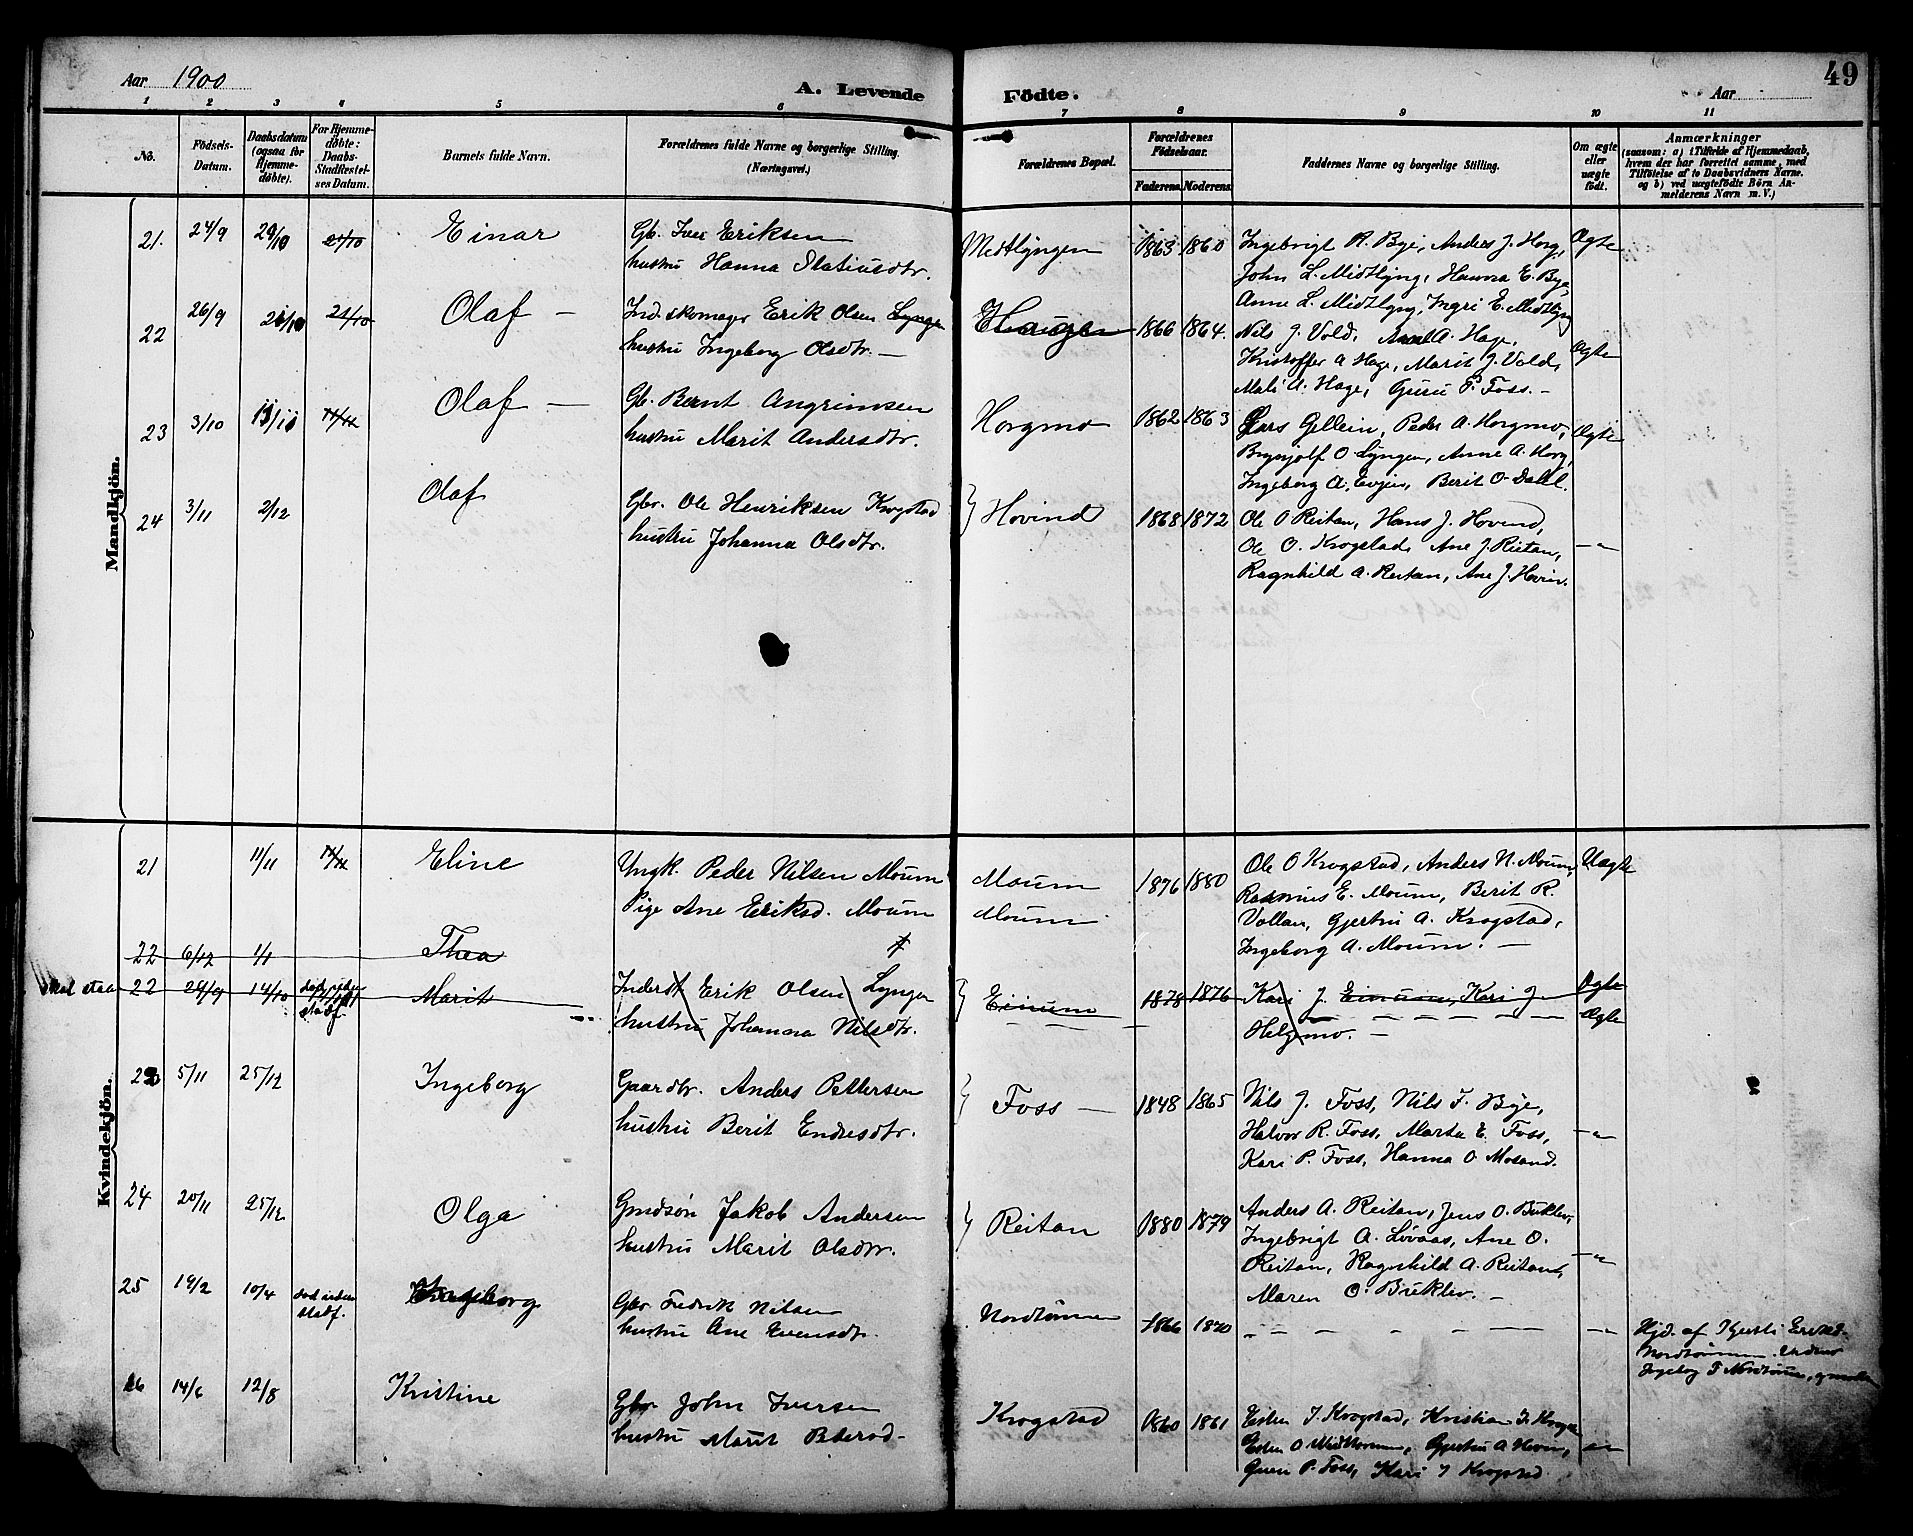 Aar 1900
A. Levende Födte.
Aar
49
1 2 3 4 5 6 7 8 9 10 11
No.
Födsels-Datum.
Daabsdatum (ogsaa for Hjemme-døbte).
For Hjemme-døbte: Daabs-Stadfæstel-ses Datum.
Barnets fulde Navn.
Forældrenes fulde Navne og borgerlige Stilling.
(Næringsvei.)
Forældrenes Bopæl.
Forældrenes Fødselsaar.
Faderens. Moderens.
Faddernes Navne og borgerlige Stilling.
Om ægte eller uægte født.
Anmærkninger
(saasom: a) i Tilfælde af Hjemmedaab,
hvem der har forrettet samme, med
Tilføielse af to Daabsvidners Navne.
og b) ved uægtefödte Börn An-
melderens Navn m. V.)
Mandkjön.
21. 24/9 29/10 21/10 Einar
Gb. Iver Eriksen
hustru Hanna
Midtlyngen 1863 1860
Ingebrigt R. Bye, Anders J. Horg,
John L. Midtlyng, Hanna E. Bye,
Anne L. Midtlyng, Ingri E. Midtlyng
Ægte
22 26/9 21/10 21/10 Olaf —
Ind. skomager Erik Olsen Lyngen
hustru Ingeborg Olsdtr. —
Haugen 1866 1864.
Nils J. Vold, A. Hage,
Kristoffer A Hage, Marit J. Vold,
Mali A. Hage, Guru P. Foss. —
Ægte
23 3/10 11/11 11/11 Olaf —
Gb. Bernt Angrimsen
hustru Marit Andersdtr.
Horgmo 1862 1863
Lars Gellein, Peder A. Horgmo,
Brynjolf O Lyngen, Anne A. Horg,
Ingeborg A. Evjen, Berit O. Dahl.
Ægte
24 3/11 2/12 Olaf
Gbr. Ole Henriksen Krogstad
hustru Johanna Olsdtr.
Hovind 1868 1872
Ole O Reitan, Hans J. Hovind,
Ole O. Krogstad, Ane J. Reitan,
Ragnhild A. Reitan, Ane J. Hovin.
—"—
Kvindekjön.
21 11/11 11/11 Eline
Ungk. Peder Nilsen Moum
Pige Ane Eriksd. Moum
Moum
Moum
1876 1880
Ole O Krogstad, Anders N. Moum,
Rasmus E. Moum, Berit R.
Vollan, Gjertru A. Krogstad,
Ingeborg A. Moum. —
Uægte
22 6/12 1/1 Thea
skal staa 22 24/9 14/10 Marit
Inderst Erik Olsen Lyngen
hustru Johanna Nilsdtr.
Einum 1878 1876
Kari J. Einum, Kari J.
Helgemo. —
Ægte
Ægte
23 5/11 25/12 Ingeborg
Gaardbr. Anders Pettersen
hustru Berit Endresdtr.
Foss — 1848 1865
Nils J. Foss, Nils F. Bye,
Halvor R. Foss, Marta E. Foss,
Kari P. Foss, Hanna O Mosand.
—"—
24 20/11 25/12 Olga
Gmdsøn Jakob Andersen
hustru Marit Olsdtr.
Reitan 1880 1879
Anders A. Reitan, Jens O. Buklev,
Ingebrigt A. Løvaas, Ane O.
Reitan, Ragnhild A. Reitan,
Maren O. Buklev. —
—"—
25 19/2 10/4 død inden stadf. Ingeborg
Gbr Fredrik Nilsen
hustru Ane Evensdtr.
Nordtømme 1866 1870
—"—
Hjd. af Kjersti Ericksd.
Nordtømmen.
Ingebog F Nordtømme,
26 14/6 12/8 Kristine
Gbr John Iversen
hustru Marit Petersd-
Krogstad 1860 1861
Esten J. Krogstad, Kristian J. Krogstad
Esten O Midttømme, Gjertru A Hovin,
Guru P. Foss, Kari J Krogstad.
—"—